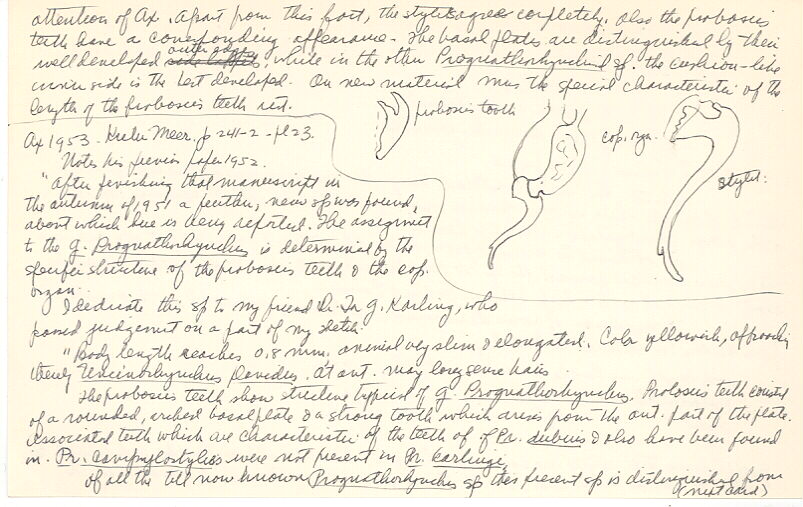 attention of Ax. Apart from this fact, the stylets agree completely. Also the proboscis
teeth have a corresponding appearance. The basal plates are distinguished by their
well developed outer edge, while in the other Prognathorhynchus sp. the cushion-like
inner side is the best developed. On new material must the special characteristic of the
length of the proboscis teeth rest.
proboscis tooth
cop. orga.
stylet.
Ax 1953. Kieler Meer. p 241-2 - pl 23.
Notes his previous paper 1952.
"After finishing that manuscript in
the autumn of 1951 a further, new sp was found,
about which here is being reported. The assignment
to the g. Prognathorhynchus is determined by the
specific structure of the proboscis teeth & the cop.
organ.
I dedicate this sp to my friend Dr. T. G. Karling, who
passed judgement on a part of my sketch.
"Body length reaches 0.8 mm, animal very slim & elongated. Color yellowish, approaching
Uncinorhynchus flavidus. At ant. may long sense hairs.
The proboscis teeth show structure typical of g. Prognathorhynchus. Proboscis teeth consist
of a rounded, arched basal plate & a strong tooth which arises from the ant. part of the plate.
Associated teeth which are characteristic of the teeth of Pr. dubius & also have been found
in Pr. campylostylus were not present in Pr. karlingi.
Of all the till now known Prognathorhynchus sp this present sp is distinguished from
(next card)